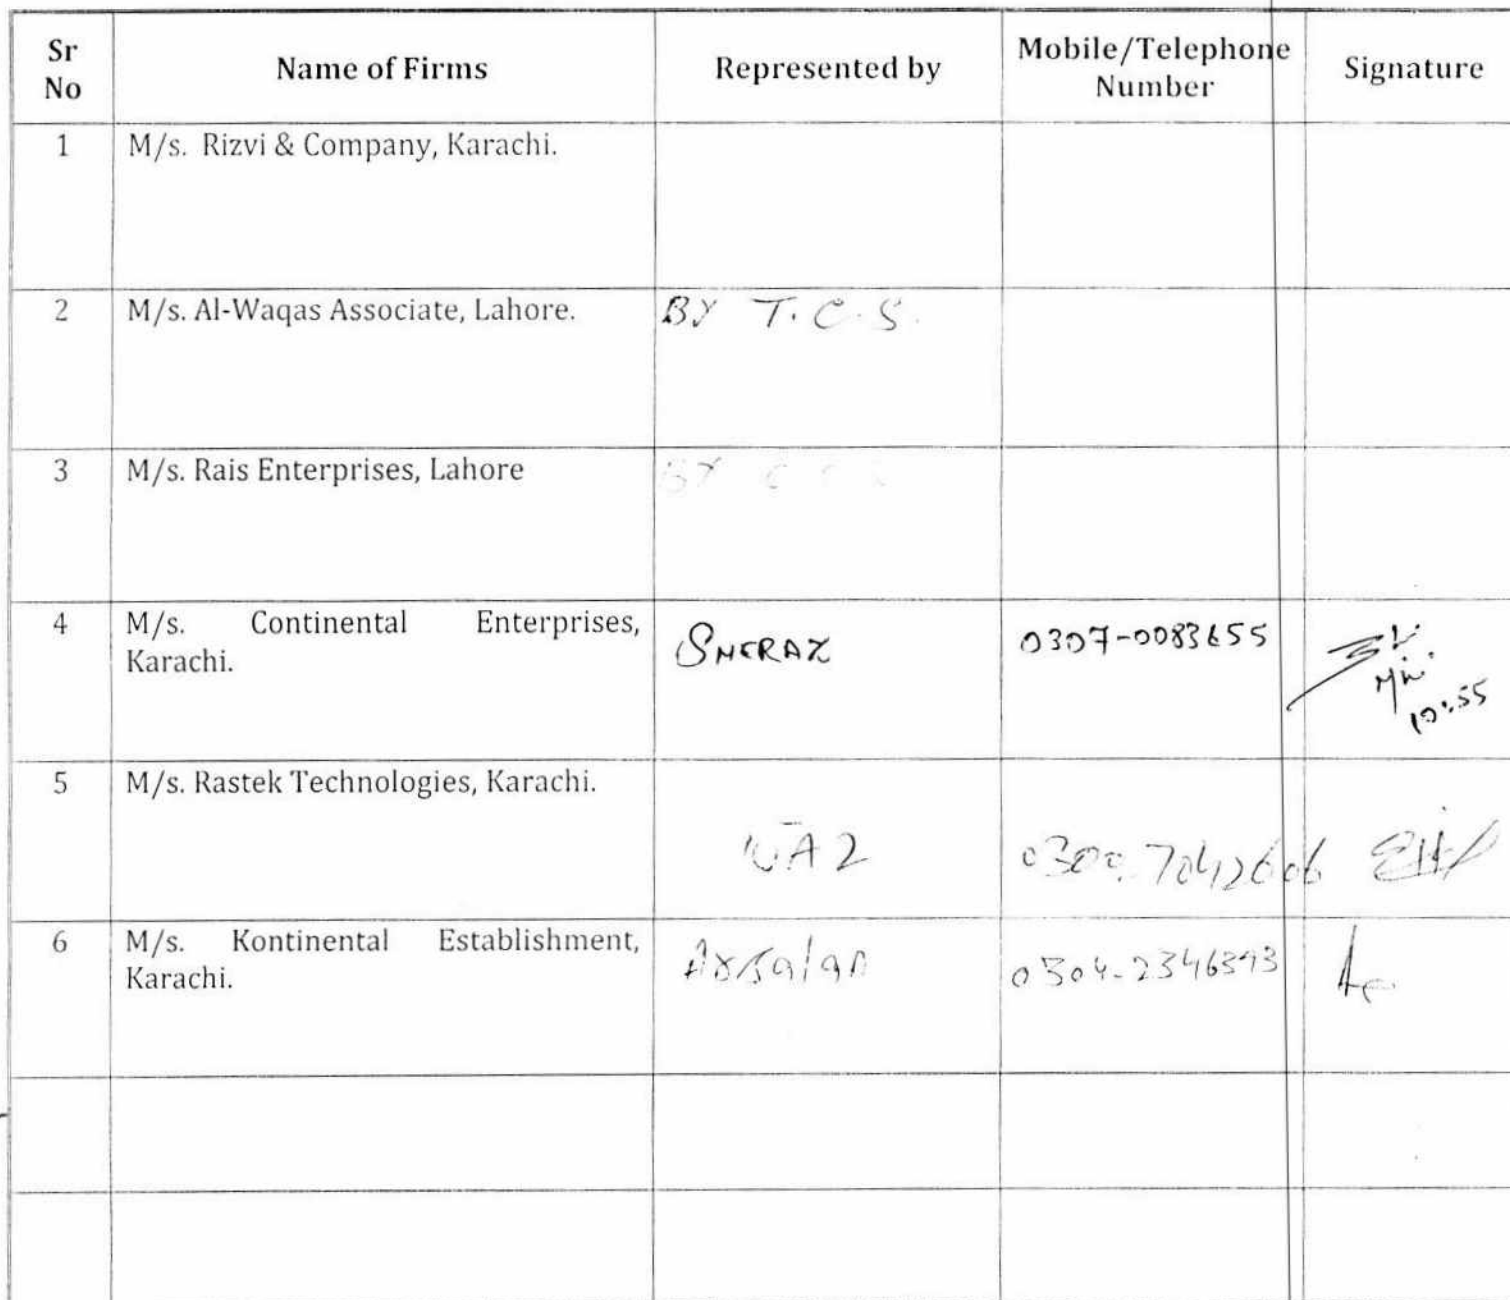 Sr No
Name of Firms
Represented by
Mobile/Telephone Number
Signature
1
M/s. Rizvi & Company, Karachi.
2
M/s. Al-Waqas Associate, Lahore.
BY T.C.S.
3
M/s. Rais Enterprises, Lahore
BY
4
M/s. Continental Enterprises,
Karachi.
SHERAZ
0307-0083655
10:55
5
M/s. Rastek Technologies, Karachi.
0300-7042606
6
M/s. Kontinental Establishment,
Karachi.
Arsalan
0304-2346393